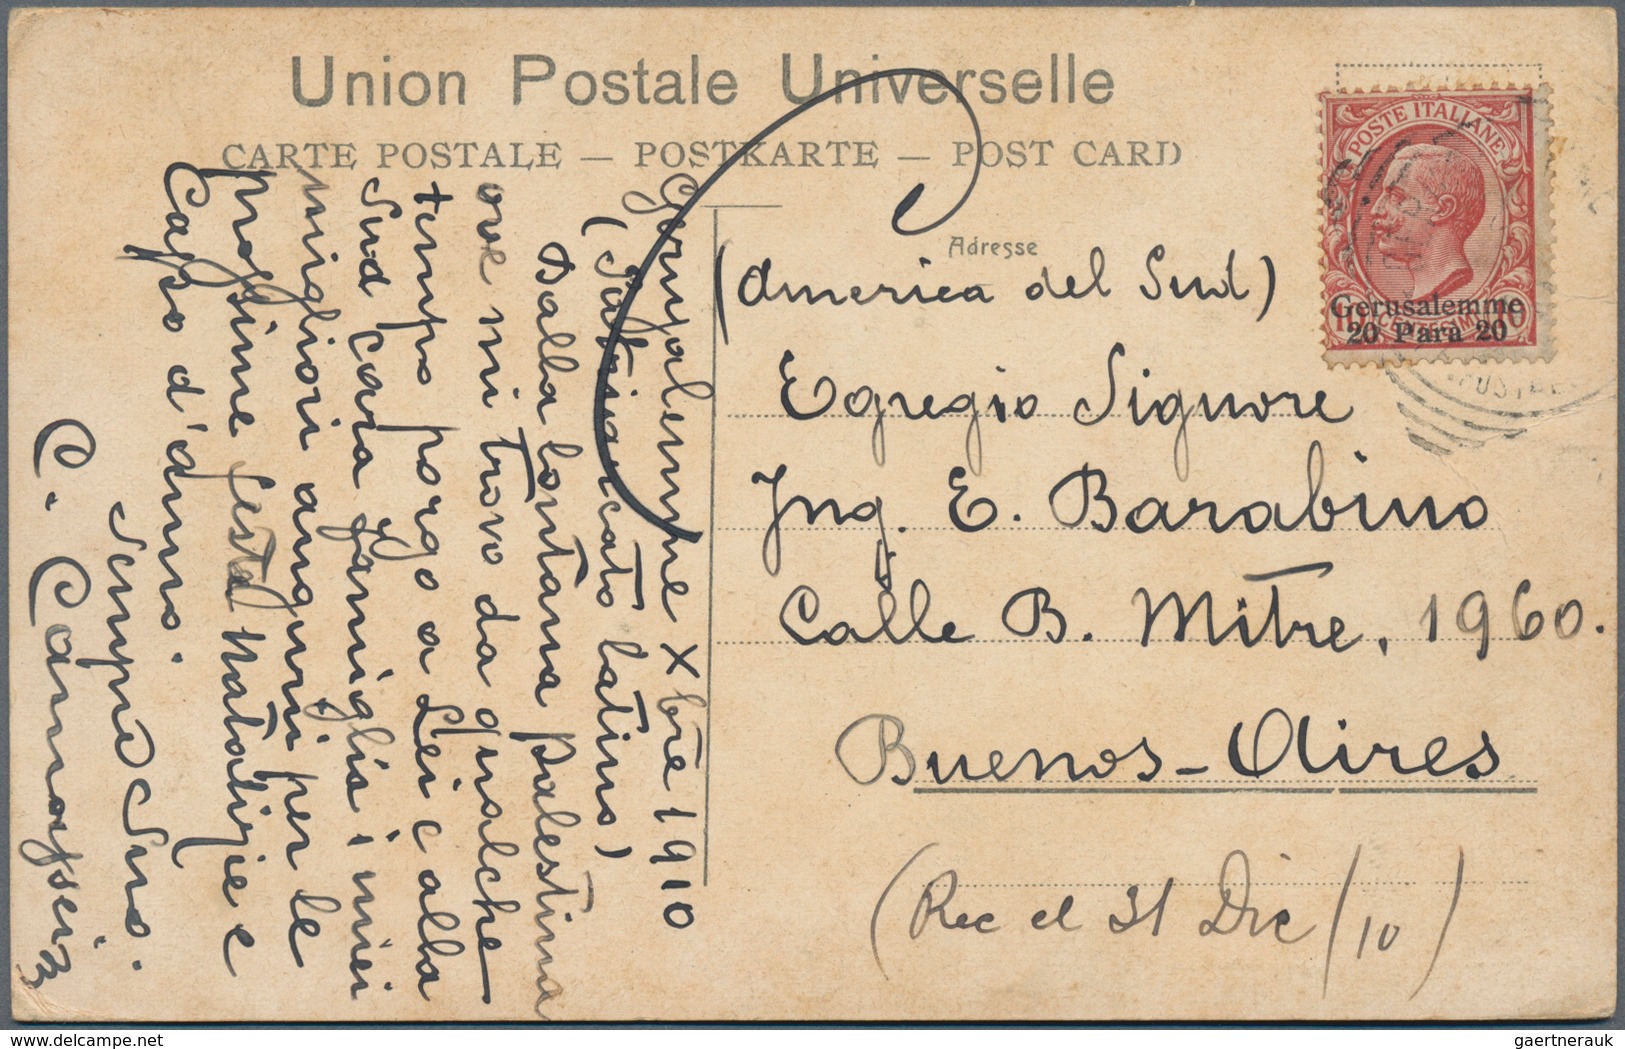 Union Postale Universelle
CARTE POSTALE — POSTKARTE — POST CARD
Adresse
POSTE ITALIANE
Gerusalemme
20 Para 20
(America del Sud)
Egregio Signore
Ing. E. Barabino
Calle B. Mitre, 1960.
Buenos-Aires
(Rec el 31 Dic/10)
Gerusalemme Xbre 1910
(Patriarcato latino)
Dalla lontana Palestina
ove mi trovo da qualche
tempo porgo a Lei e alla
Sua cara famiglia i miei
migliori auguri per le
prossime feste Natalizie e
Capo d'anno.
Sempre Suo.
C.
delcampe.net
gaertnerauk